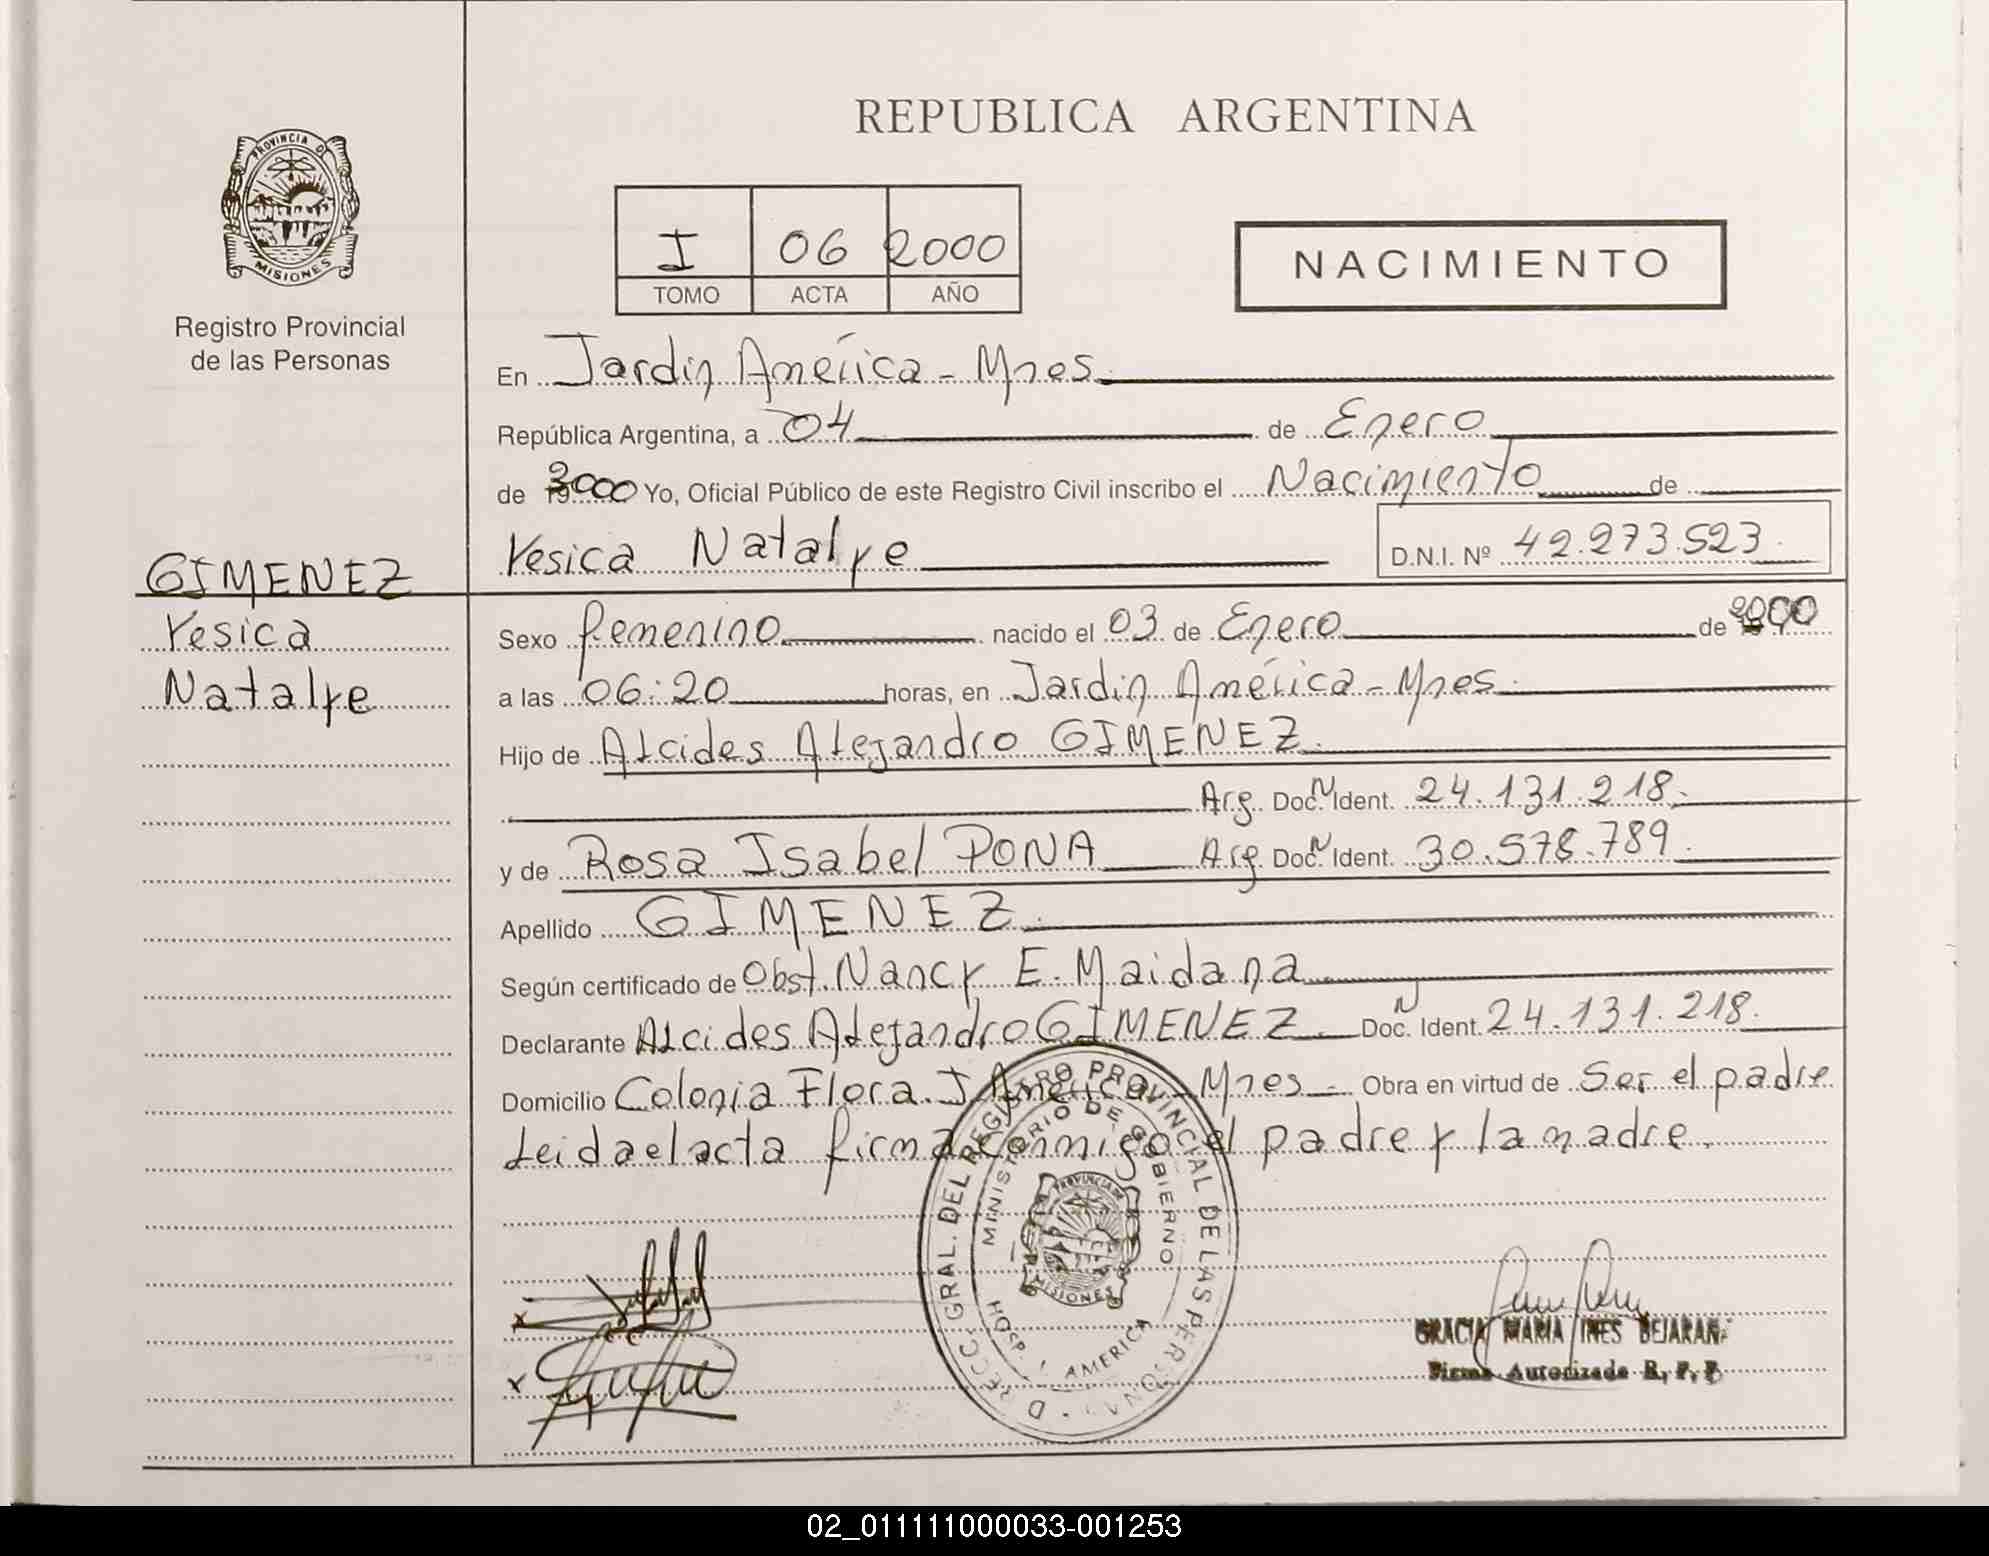 REPUBLICA ARGENTINA
PROVINCIA D
MISIONES
Registro Provincial
de las Personas
I 06 2000
TOMO ACTA AÑO
NACIMIENTO
En Jardin América - Mnes.
República Argentina, a 04 de Enero
de 2000 Yo, Oficial Público de este Registro Civil inscribo el Nacimiento de
Yesica Natalye D.N.I. Nº 42.273.523
GIMENEZ
Yesica
Natalye
Sexo femenino nacido el 03 de Enero de 2000
a las 06:20 horas, en Jardin América - Mnes.
Hijo de Alcides Alejandro GIMENEZ.
Arg. Doc. N Ident. 24.131.218.
y de Rosa Isabel PONA Arg. Doc. N Ident. 30.578.789.
Apellido GIMENEZ.
Según certificado de Obst. Nancy E. Maidana
Declarante Alcides Alejandro GIMENEZ. Doc. N Ident. 24.131.218.
Domicilio Colonia Flora. J. América - Mnes. Obra en virtud de Ser el padre
Leida el acta firma conmigo el padre y la madre.
GRAL. DEL REGISTRO PROVINCIAL DE LAS PERSONAS
MINISTERIO DE GOBIERNO
PROVINCIA DE
MISIONES
HOSP. J. AMERICA
GRACIA MARIA INES BEJARAN
Firma Autorizada R. P. P
02_011111000033-001253